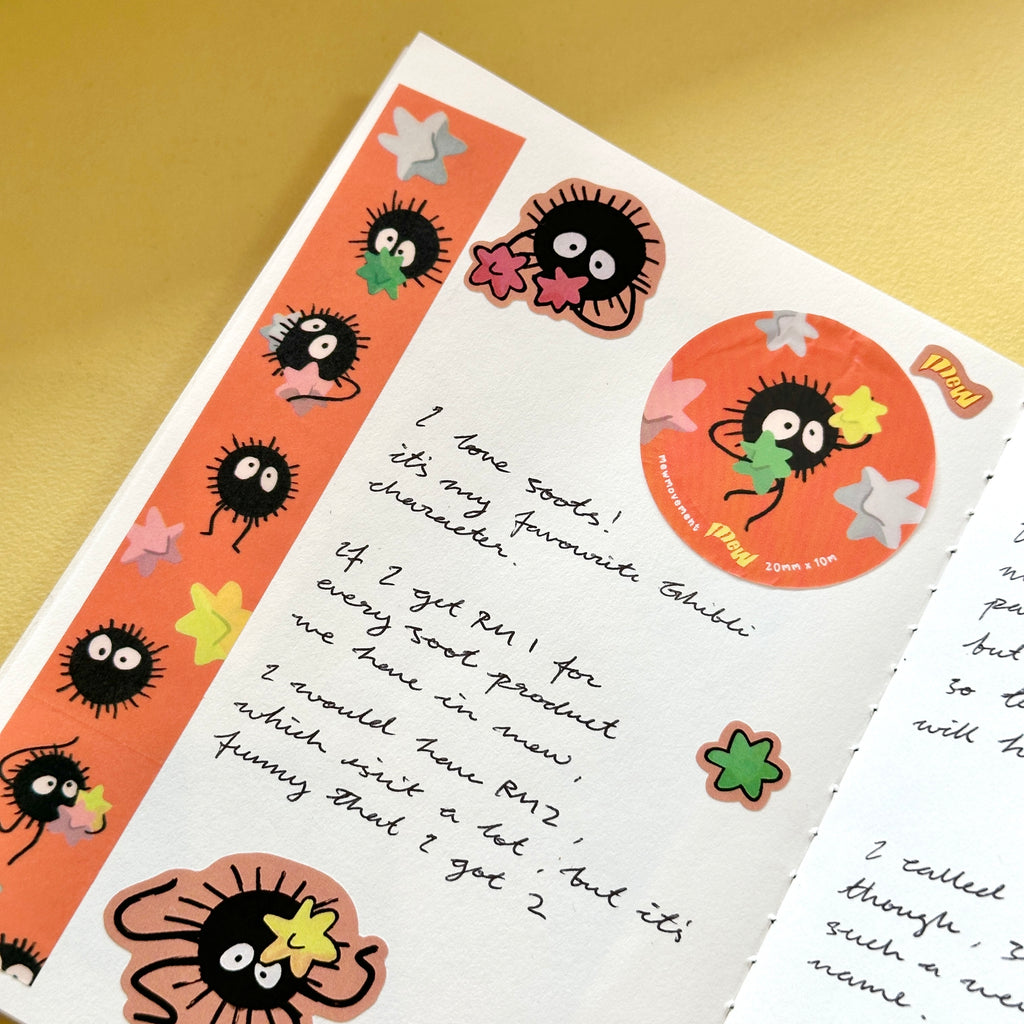 I love soots!
it's my favourite Ghibli
character.
If I get RM1 for
every soot product
we have in mew,
I would have RM2,
which isn't a lot, but it's
funny that I got 2
mew
mewmovement
mew
20mm x 10m
but
so
will
I called
though,
such a
name.